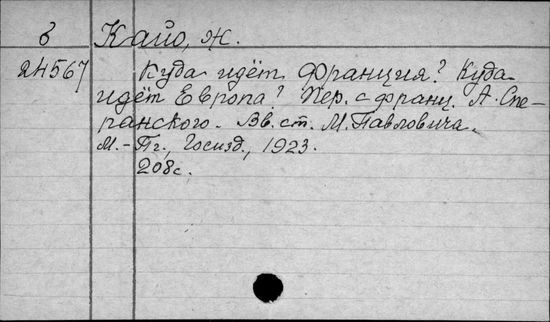 б Кайо, Ж.
24567 Куда идёт Франция? Куда
идёт Европа? Пер. с франц. А. Спе-
ранского. Вв. ст. М. Павловича.
М.-Пг., Госизд., 1923.
208с.